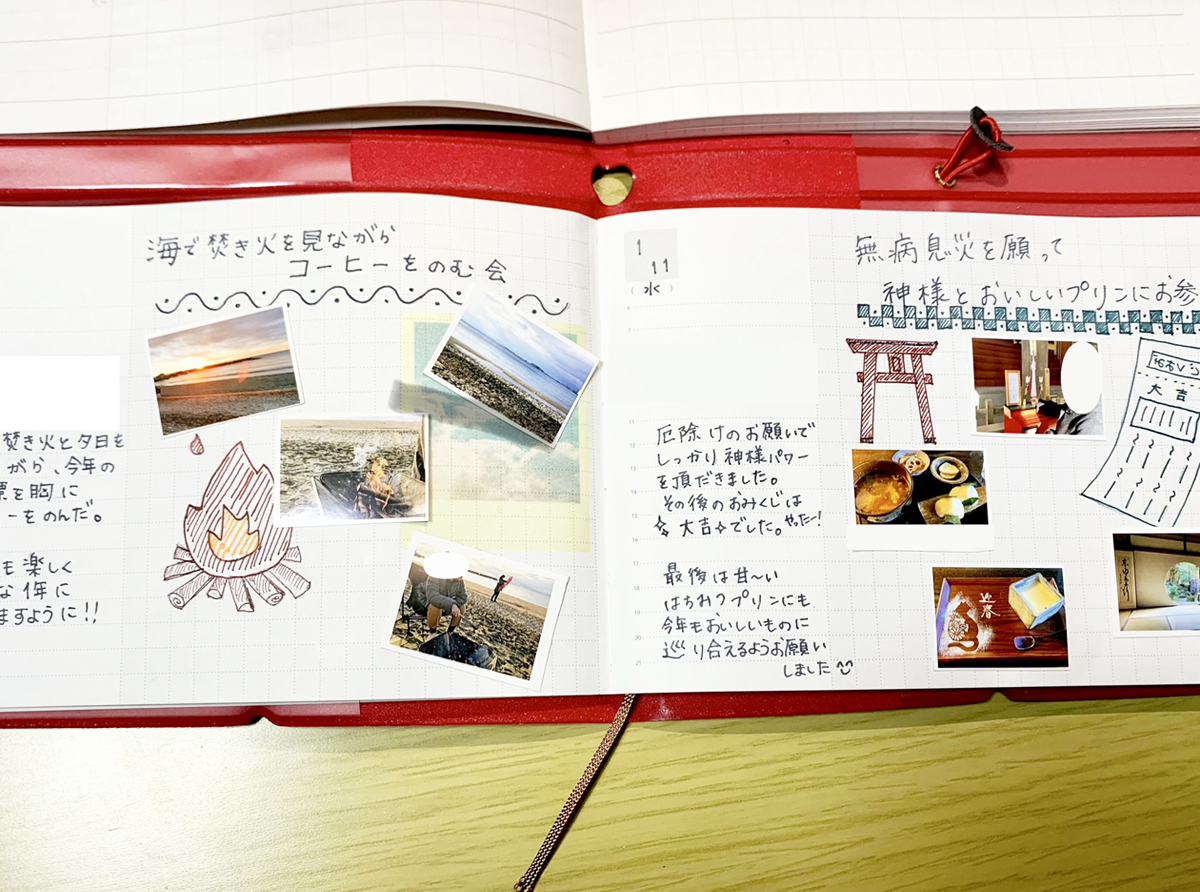 海で焚き火を見ながら
コーヒーをのむ会
焚き火と夕日を
がら、今年の
標を胸に
ーをのんだ。
も楽しく
な1年に
ますように!!
1
11
(水)
無病息災を願って
神様とおいしいプリンにお参
厄除けのお願いで
しっかり神様パワー
を頂だきました。
その後のおみくじは
大吉でした。やったー!
最後は甘〜い
はちみつプリンにも
今年もおいしいものに
巡り合えるようお願い
しました
大吉
迎春
11
12
13
14
16
17
18
19
20
21